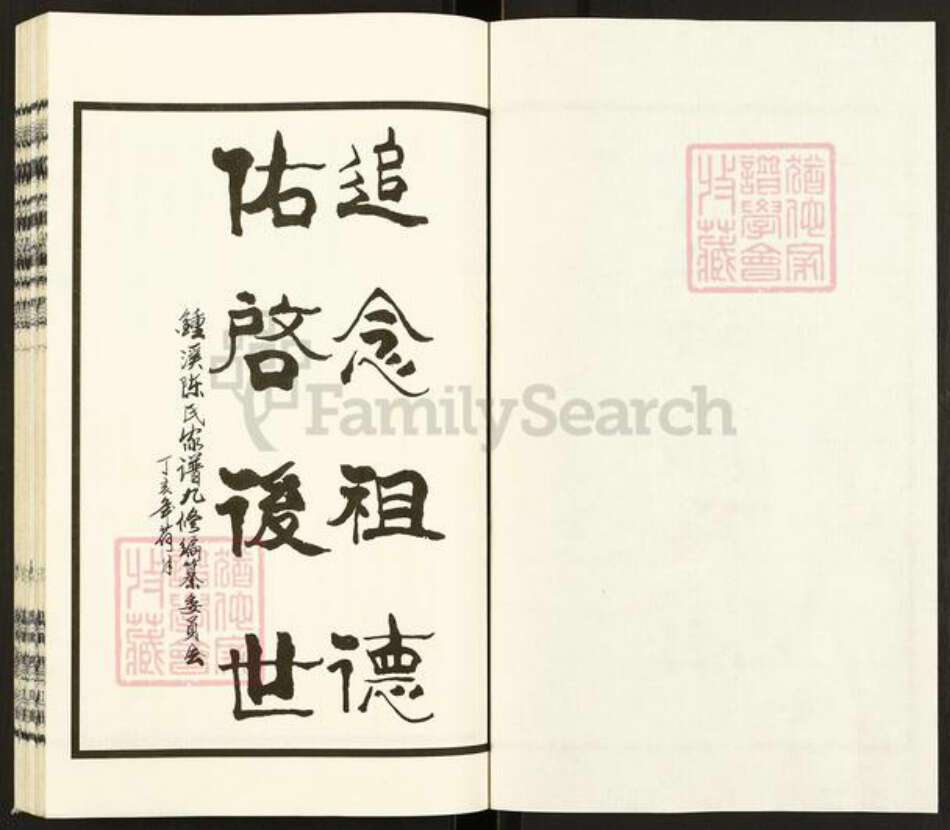 譜學會
珍藏
追念祖德
佑啓後世
鍾溪陈氏家谱九修编纂委员会
丁亥年荷月
FamilySearch